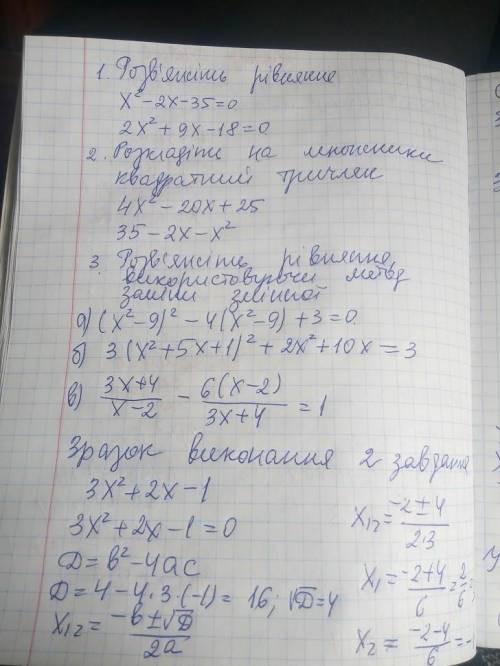 1. Розв'яжіть рівняння
x²-2x-35=0
2x²+9x-18=0
2. Розкладіть на множники
квадратний тричлен
4x²-20x+25
35-2x-x²
3. Розв'яжіть рівняння,
використовуючи метод
заміни змінної
а) (x²-9)²-4(x²-9)+3=0
б) 3(x²+5x+1)²+2x²+10x=3
в) (3x+4)/(x-2) - 6(x-2)/(3x+4) =1
Зразок виконання 2 завдання
3x²+2x-1
3x²+2x-1=0
D=b²-4ac
D=4-4·3·(-1)=16; √D=4
x₁₂=(-b±√D)/2a
x₁₂=(-2±4)/2·3
x₁=(-2+4)/6=2/6=
x₂=(-2-4)/6=-